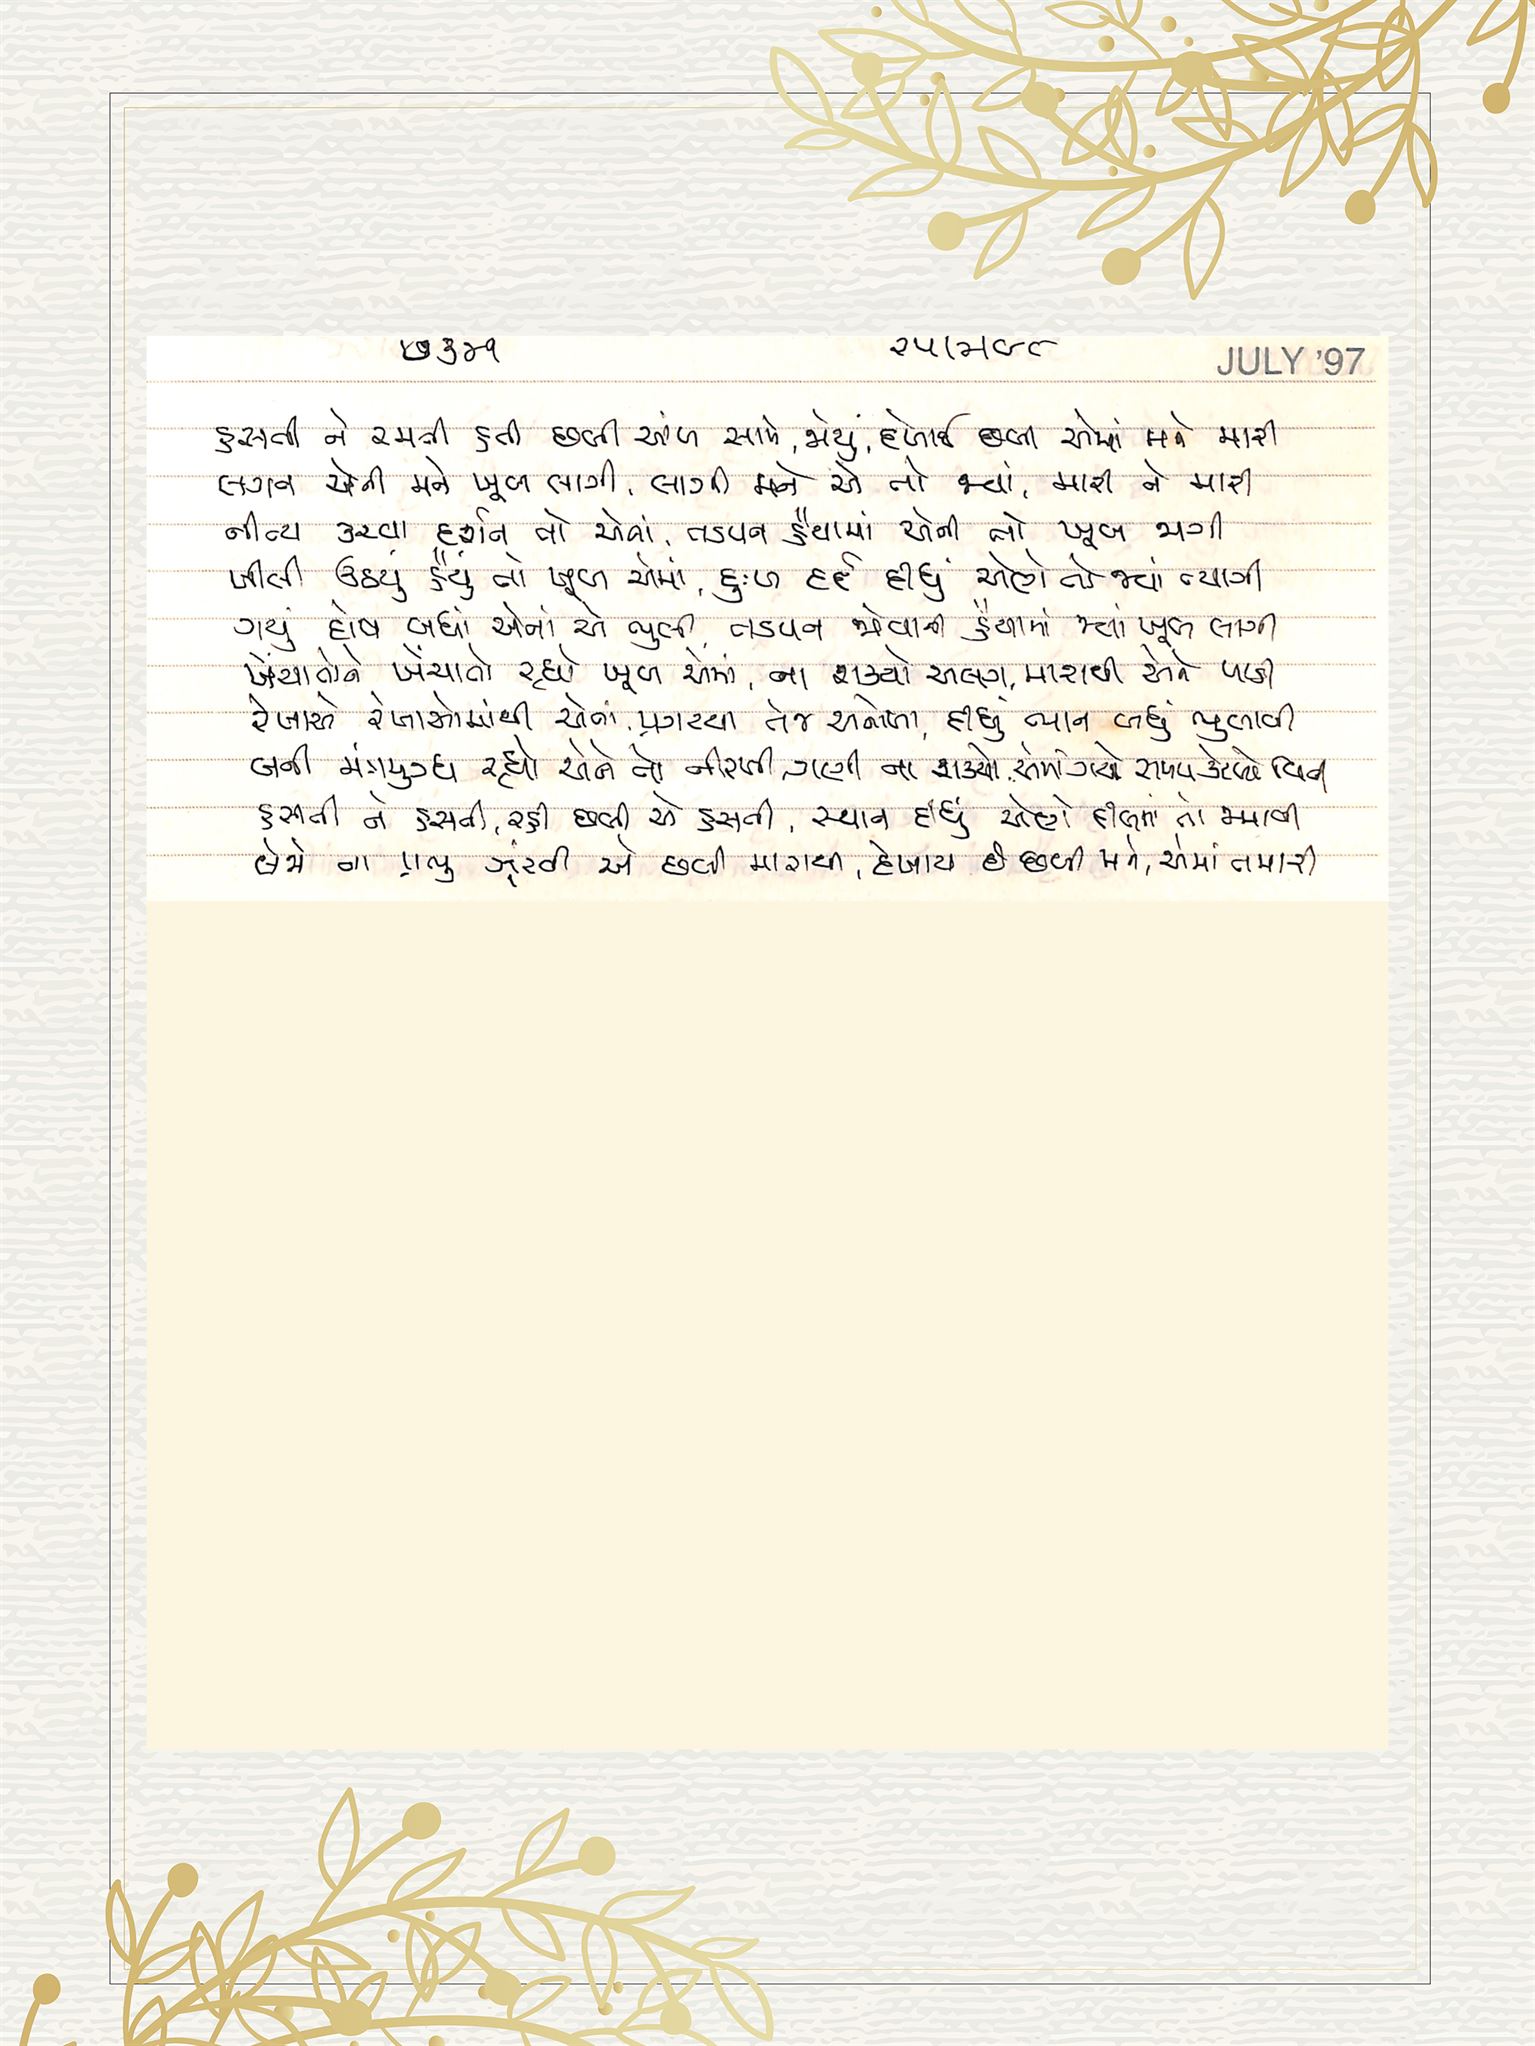 ૭૩૪૧ ૨૫।મ૯૮ JULY '97
હસતી ને રમતી હતી છબી આંખ સામે, જોયું, દેખાઈ છબી એમાં મને મારી
લગન એની મને ખૂબ લાગી, લાગી મને એ તો જ્યાં, મારી ને મારી
નીત્ય કરવા દર્શન તો એનાં, તડપન હૈયામાં એની તો ખૂબ જાગી
ખીલી ઉઠયું હૈયું તો ખૂબ એમાં, દુઃખ દર્દ દીધું એણે તો જ્યાં ત્યાગી
ગયું દોષ બધાં એનાં એ ભુલી, તડપન જોવાની હૈયામાં જ્યાં ખૂબ લાગી
ખેંચાતોને ખેંચાતો રહ્યો ખૂબ એમાં, ના શક્યો અલગ, મારાથી એને પાડી
રેખાએ રેખાઓમાંથી એનાં, પ્રગટયા તેજ અનોખા, દીધું ભાન બધું ભુલાવી
બની મંત્રમુગ્ધ રહ્યો એને તો નીરખી, ગણી ના શક્યો, એમાં ગયો સમય કેટલો વિતી
હસતી ને હસતી, રહી છબી એ હસતી, સ્થાન દીધું એણે દીલમાં તો જમાવી
જોજે ના પ્રભુ ઝૂંટવી એ છબી મારાથી, દેખાય છે છબી મને, એમાં તમારી